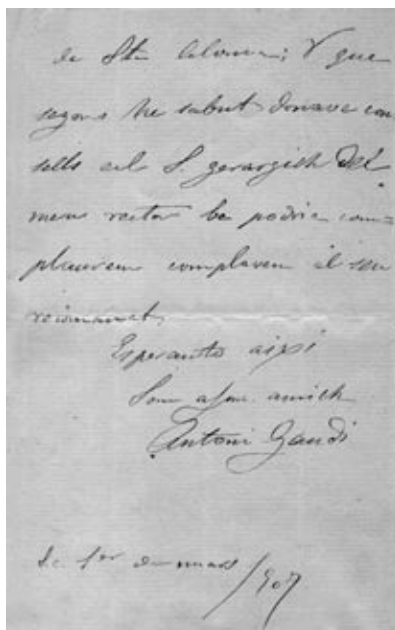 de Sta Coloma; Y que
segons he sabut donava con
sells al S. gerargich del
meu rector be podria com=
plaurem complavem el seu
recomanat,
Esperantto aixi
Som afm. amich
Antoni Gaudi
1er de mars /907